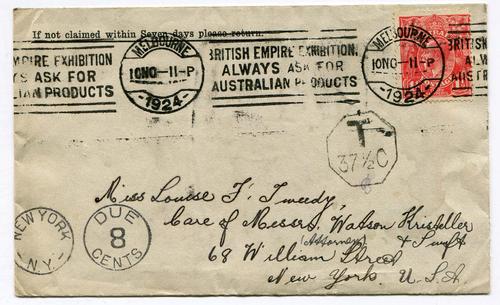 If not claimed within Seven days please return.
MPIRE EXHIBITION
S ASK FOR
IAN PRODUCTS
MELBOURNE
10NO-11-P
-1924-
BRITISH EMPIRE EXHIBITION,
ALWAYS ASK FOR
AUSTRALIAN PRODUCTS
MELBOURNE
10NO-11-P
-1924-
T
37½C
Miss Louise F. Tweedy,
Care of Messrs. Watson Kristeller
Attorneys & Swift
68 William Street
New York. U.S.A.
NEW YORK
N.Y.
DUE
8
CENTS